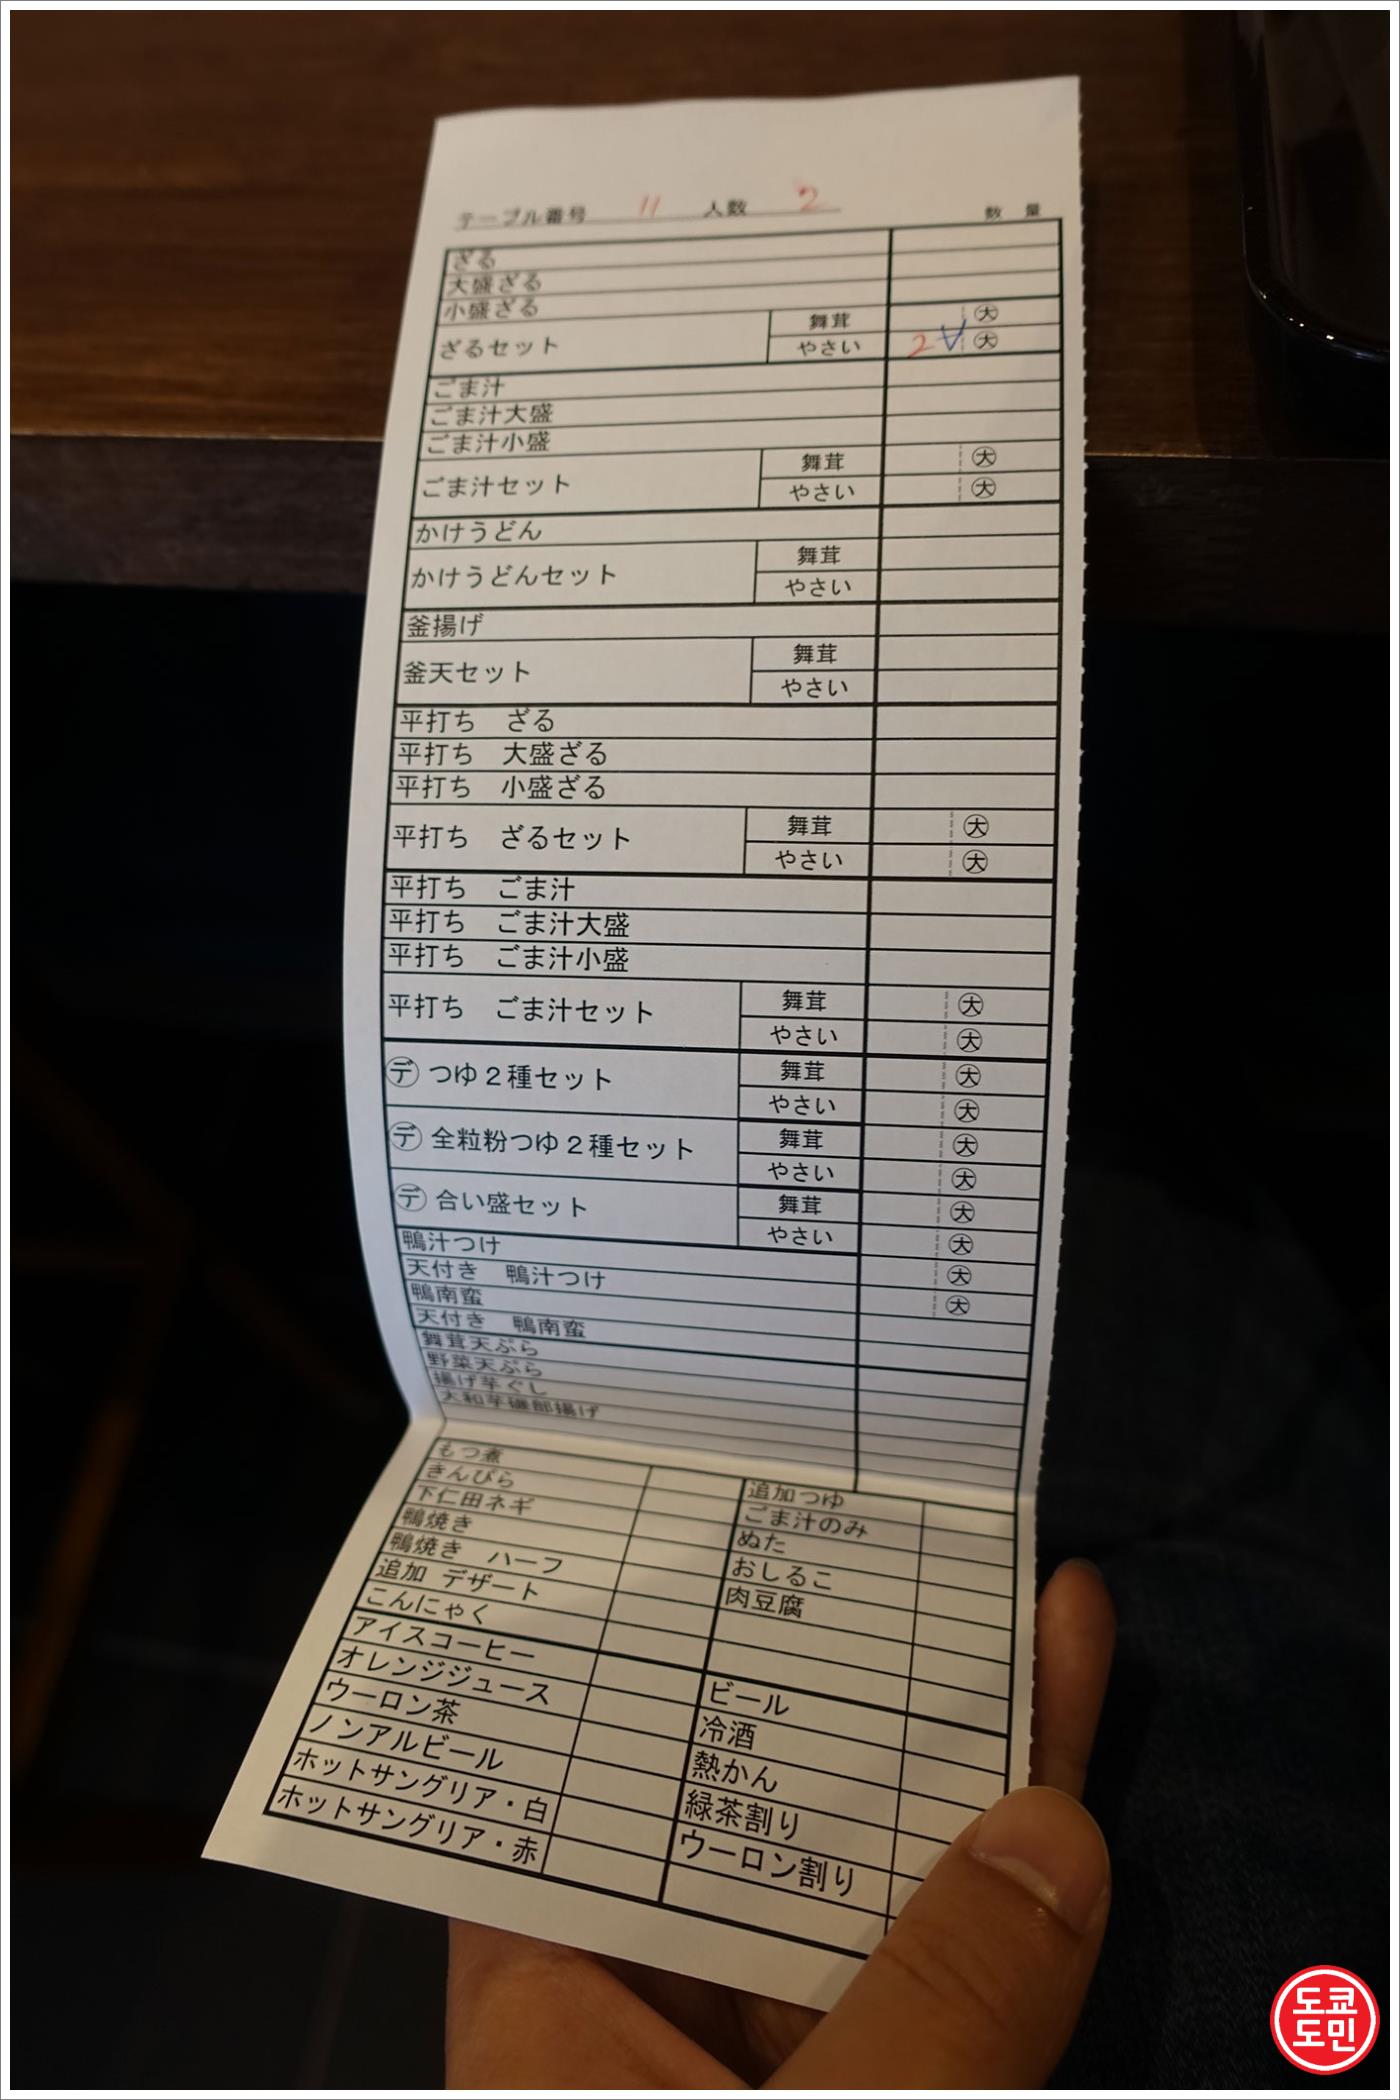 テーブル番号 11 人数 2 数 量
ざる
大盛ざる
小盛ざる
ざるセット 舞茸 大
やさい 2 大
ごま汁
ごま汁大盛
ごま汁小盛
ごま汁セット 舞茸 大
やさい 大
かけうどん
かけうどんセット 舞茸
やさい
釜揚げ
釜天セット 舞茸
やさい
平打ち ざる
平打ち 大盛ざる
平打ち 小盛ざる
平打ち ざるセット 舞茸 大
やさい 大
平打ち ごま汁
平打ち ごま汁大盛
平打ち ごま汁小盛
平打ち ごま汁セット 舞茸 大
やさい 大
デ つゆ2種セット 舞茸 大
やさい 大
デ 全粒粉つゆ2種セット 舞茸 大
やさい 大
デ 合い盛セット 舞茸 大
やさい 大
鴨汁つけ 大
天付き 鴨汁つけ 大
鴨南蛮
天付き 鴨南蛮
舞茸天ぷら
野菜天ぷら
揚げ芋ぐし
大和芋磯部揚げ
もつ煮
きんぴら
下仁田ネギ
鴨焼き
鴨焼き ハーフ
追加 デザート
こんにゃく
アイスコーヒー
オレンジジュース
ウーロン茶
ノンアルビール
ホットサングリア・白
ホットサングリア・赤
追加つゆ
ごま汁のみ
ぬた
おしるこ
肉豆腐
ビール
冷酒
熱かん
緑茶割り
ウーロン割り
도쿄
도민